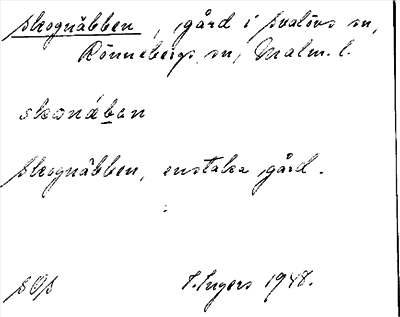 Skognäbben, gård i Svalövs sn,
Rönnebergs sn, Malm. l.
skånäban
Skognäbben, enstaka gård.
SOS I. Ingers 1948.